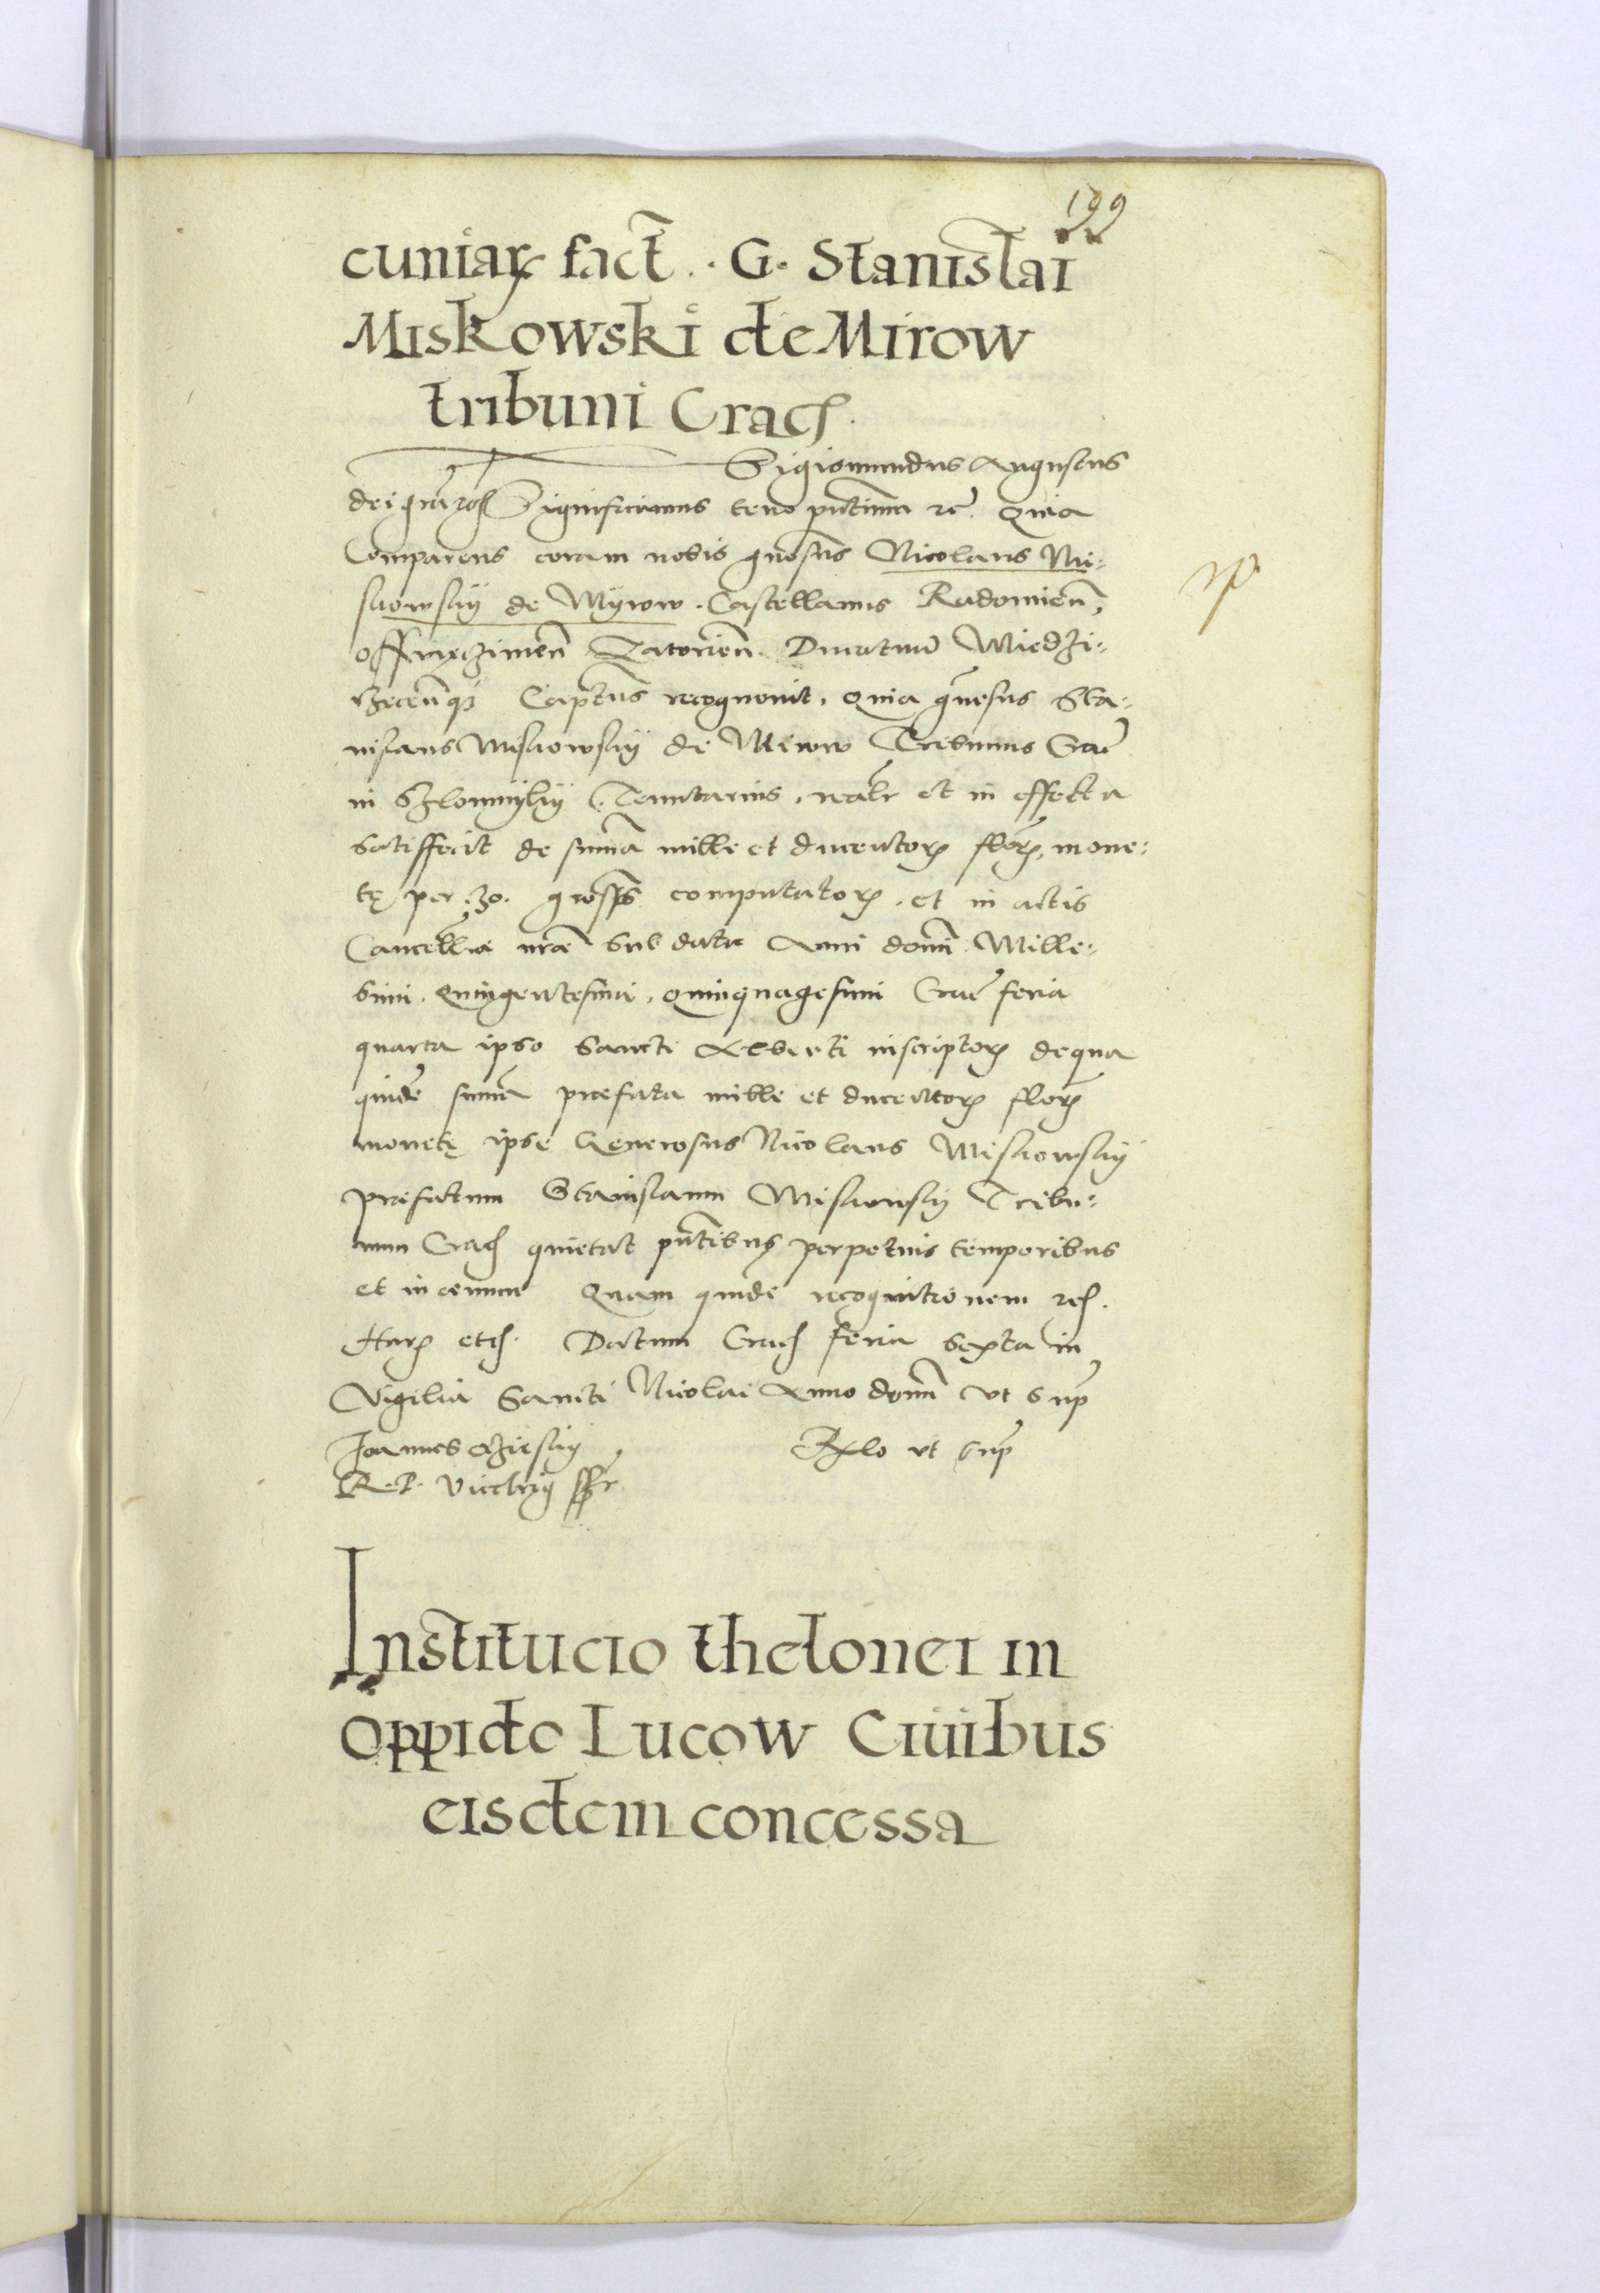 199
cuniar fact. G. Stanislai
Miskowski de Mirow
tribuni Crac
Sigismundus Augustus
dei gra rex Significamus teno pntium rc quia
Comparens coram nobis gnosus Nicolaus Mi:
skowsky de Myrow Castellanus Radomien,
Osswyeczimen Zatorien Miedzi:
rzecenq Captus recognovit, quia gnesus Sta:
nislaus Miskowsky de Mirow Tribunus Crac
in Tenutarius, realr et in effectu
satisffecit de suma mille et ducentor flor, mone:
tę per 30. gross computator, et in actis
Cancellia nrae sub data Anni domi Mille:
simi, Quingentesimi, quinquagesimi Crac feria
quarta ipso Sancti Alberti inscriptor de qua
quide suma prefata mille et ducentor flor
monetę ipse Generosus Nicolaus Miskowsky
prefatum Stanislaum Miskowsky Tribu:
num Crac quietat pntibus perpetuis temporibus
et in aevum Quam quide recognitionem rc.
Harum etc. Datum Crac feria sexta in
Vigilia Sancti Nicolai Anno domi ut sup
Joannes Ocziesky Rlo ut sup
R. P. Vice
Institucio thelonei in
oppido Lucow Civibus
eisdem concessa